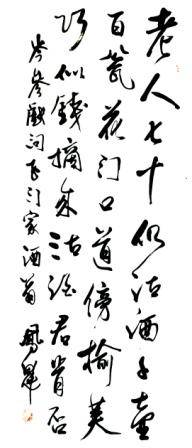 老人七十仍沽酒千壶
百甕花门口道傍榆荚
巧似錢摘来沽酒君肯否
岑參戯问花门家酒翁 鳳